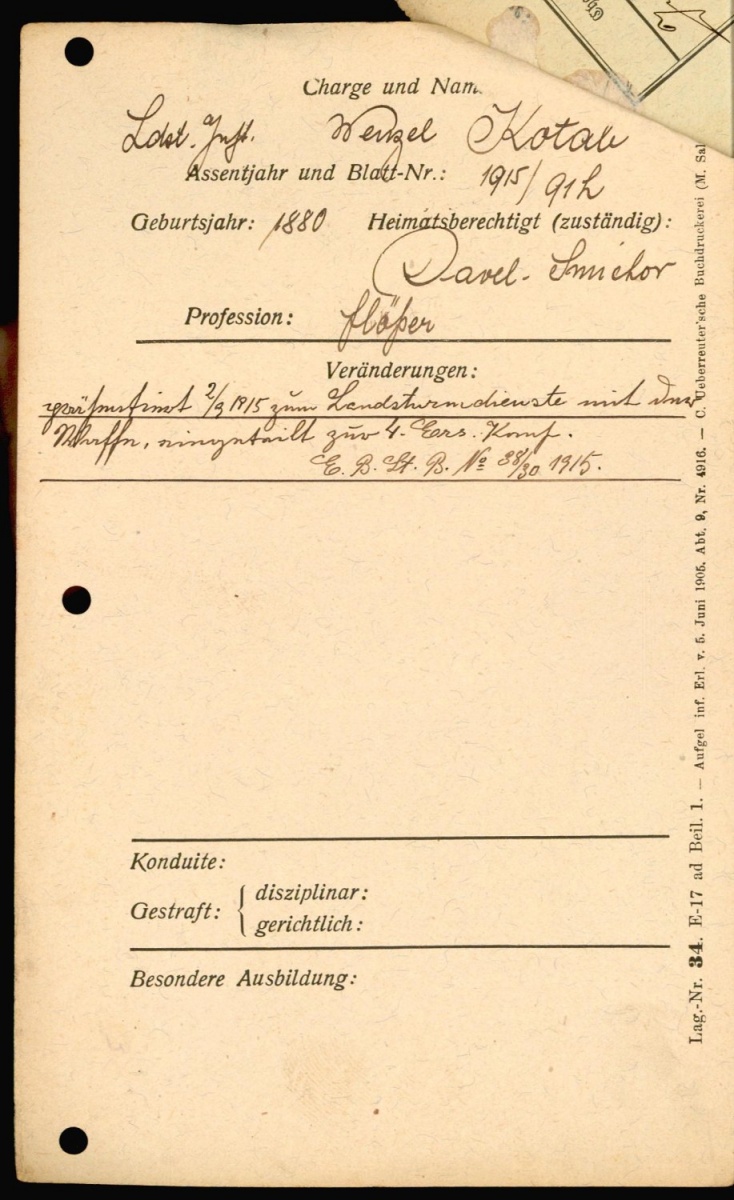 Charge und Nam
Ldst. Inft. Wenzel Kotab
Assentjahr und Blatt-Nr.: 1915/91h
Geburtsjahr: 1880 Heimatsberechtigt (zuständig):
Davel - Smichov
Profession: Flößer
Veränderungen:
präsentiert 2/9 1915 zum Landsturmdienste mit der
Waffe, eingeteilt zur 4. Ers. Komp.
E. B. St. B. No 38/30 1915.
Konduite:
Gestraft: { disziplinar:
gerichtlich:
Besondere Ausbildung:
Lag.-Nr. 34. E-17 ad Beil. 1. — Aufgel inf. Erl. v. 5. Juni 1905, Abt. 9, Nr. 4916. — C. Ueberreuter'sche Buchdruckerei (M. Sal